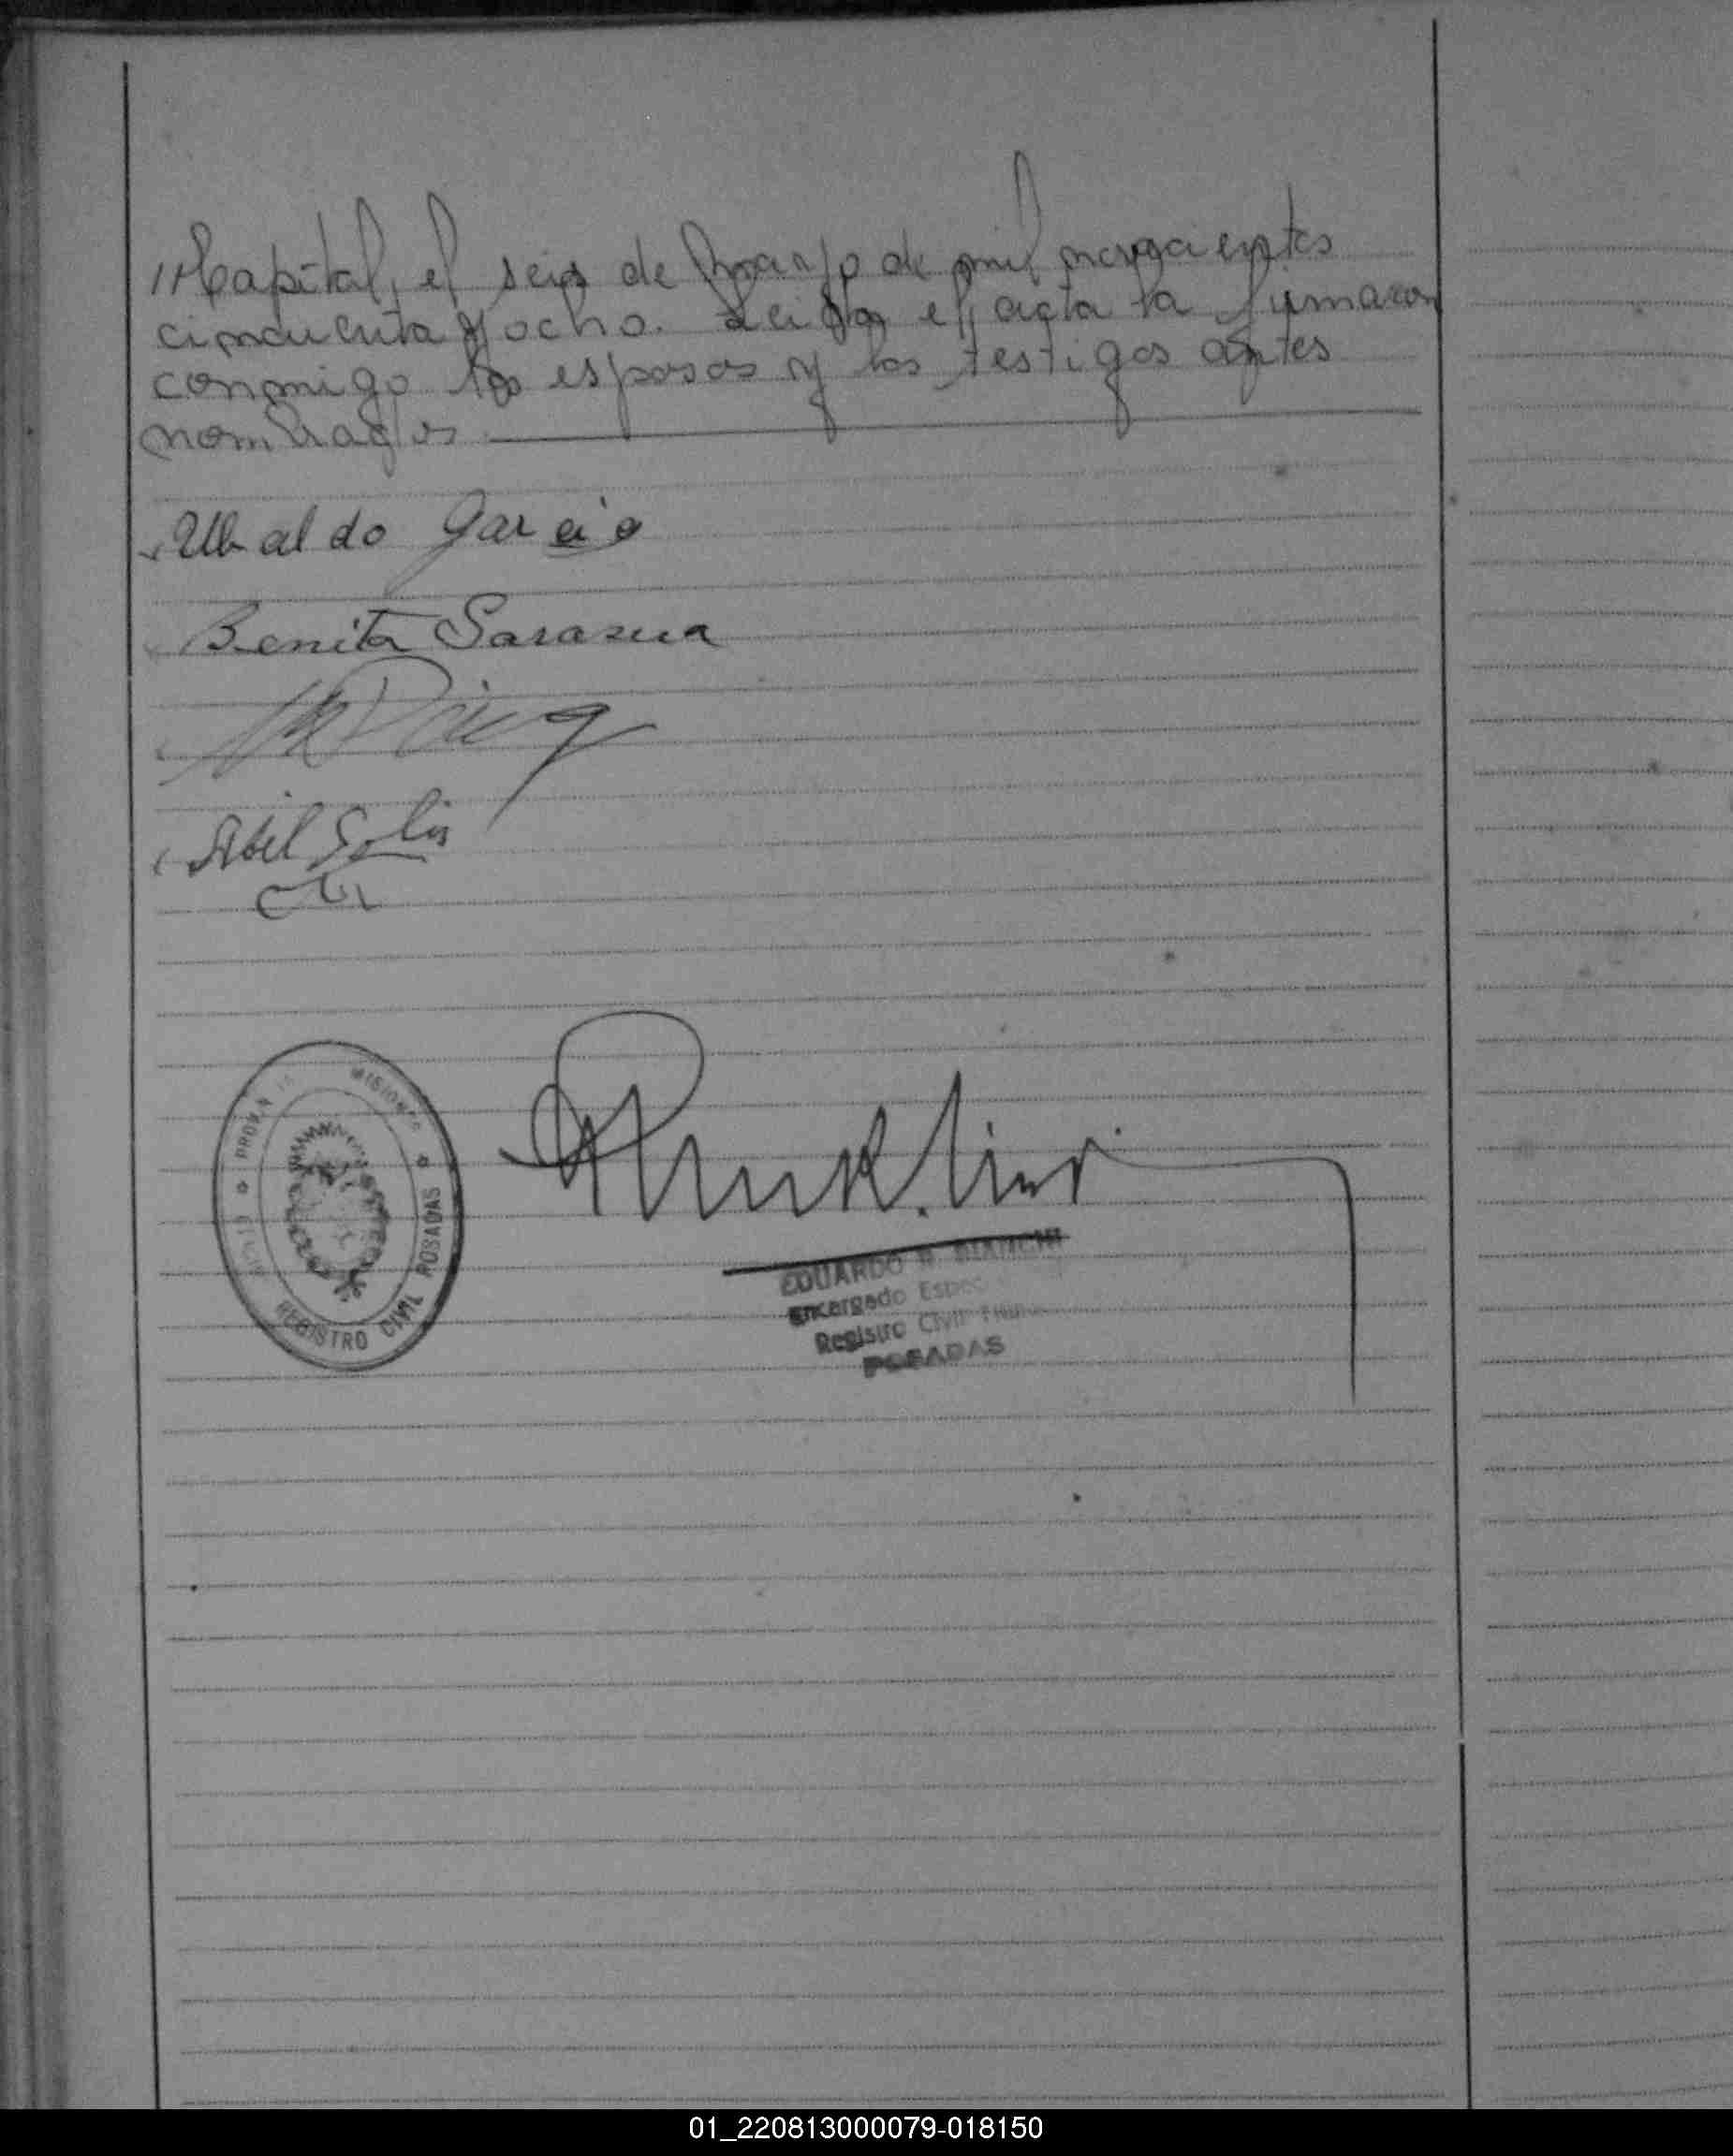 Capital, el seis de Marzo de mil novecientos
cincuenta y ocho. Leida el acta la firmaron
conmigo los esposos y los testigos antes
nombrados
Ubaldo Garcia
Benita Sarasua
Abel Solis
PROVINCIA MISIONES
REGISTRO CIVIL POSADAS
EDUARDO R. BIANCHI
Encargado
Registro Civil
POSADAS
01_220813000079-018150